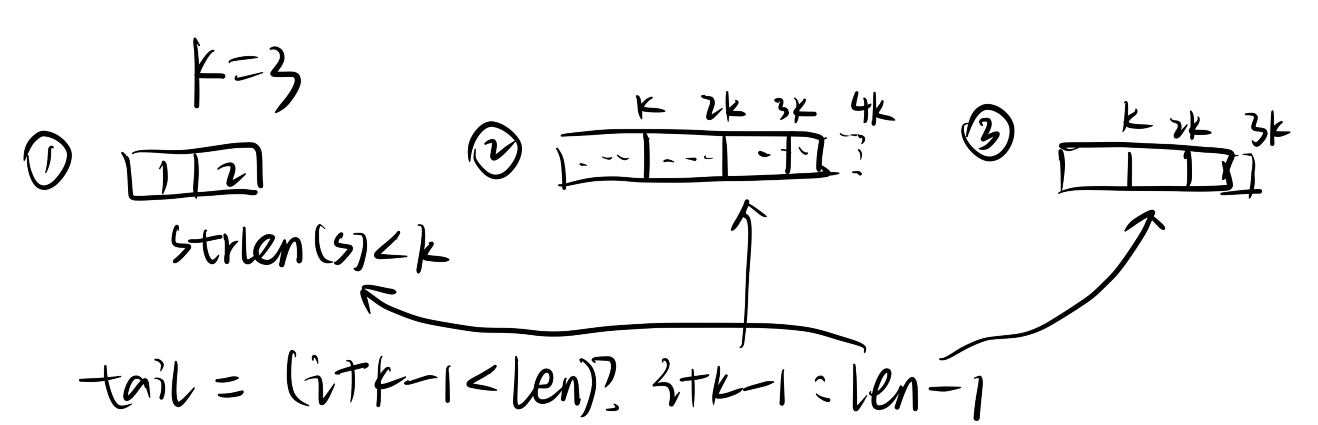 k=3
① 1 2
strlen(s)<k
② k 2k 3k 4k
③ k 2k 3k
tail = (i+k-1<len)? i+k-1 : len-1